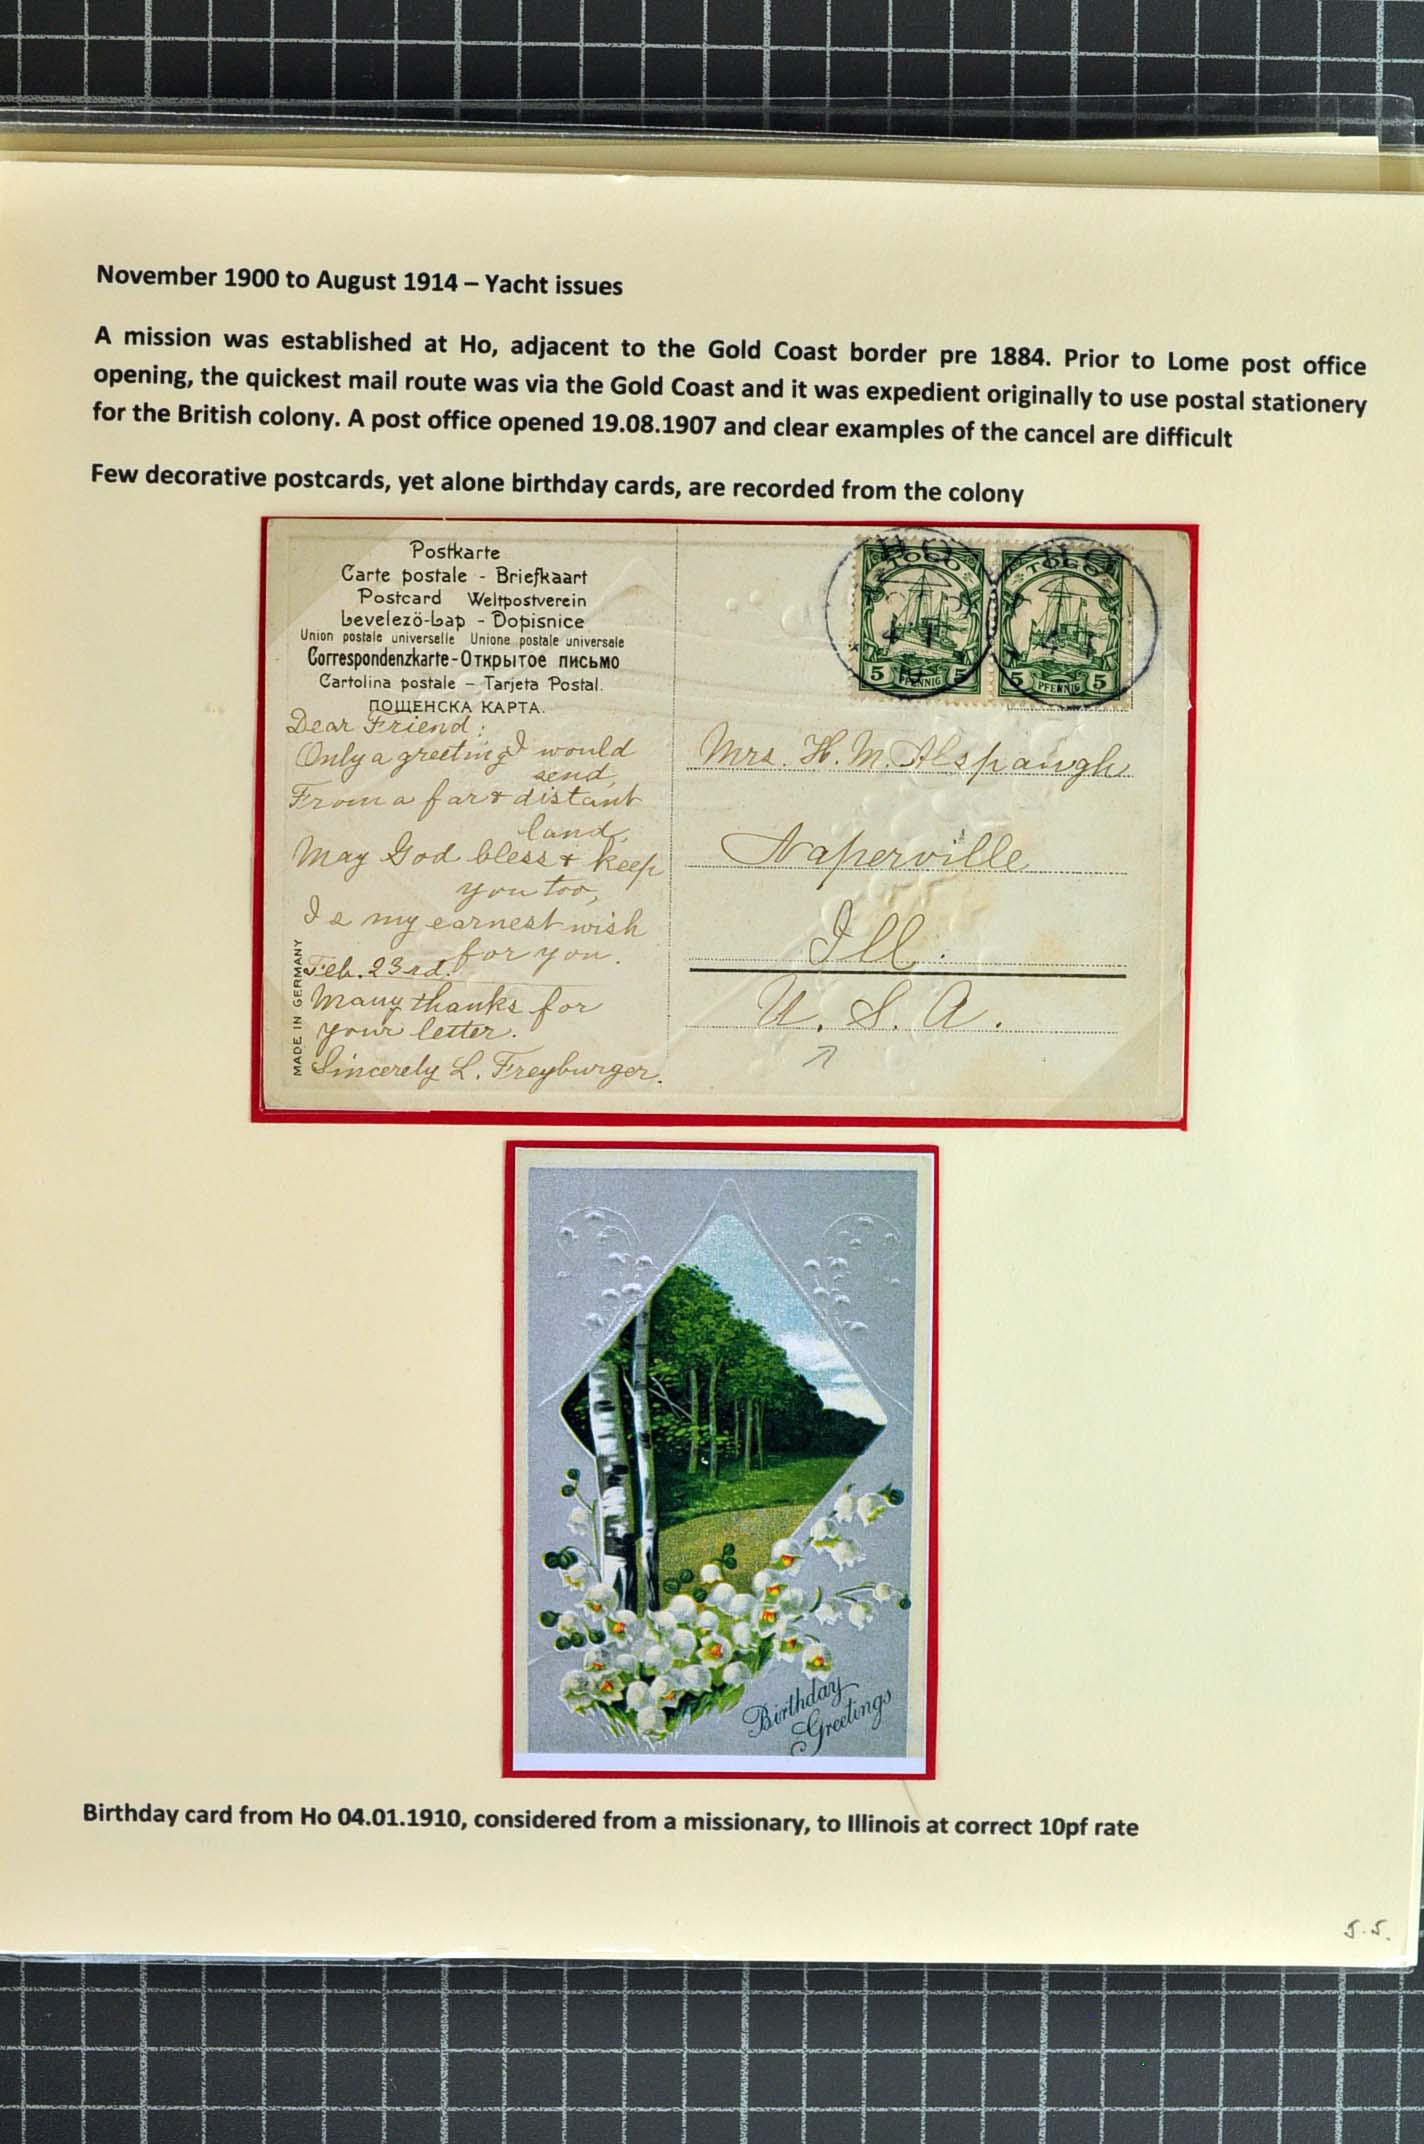 November 1900 to August 1914 – Yacht issues
A mission was established at Ho, adjacent to the Gold Coast border pre 1884. Prior to Lome post office
opening, the quickest mail route was via the Gold Coast and it was expedient originally to use postal stationery
for the British colony. A post office opened 19.08.1907 and clear examples of the cancel are difficult
Few decorative postcards, yet alone birthday cards, are recorded from the colony
Postkarte
Carte postale - Briefkaart
Postcard Weltpostverein
Levelezö-Lap - Dopisnice
Union postale universelle Unione postale universale
Correspondenzkarte - Открытое письмо
Cartolina postale – Tarjeta Postal.
ПОЩЕНСКА КАРТА.
Dear Friend:
Only a greeting I would
send,
From a far & distant
land,
May God bless & keep
you too,
Is my earnest wish
for you.
Feb. 23rd.
Many thanks for
your letter.
Sincerely L. Freyburger.
MADE IN GERMANY
HO
HO
TOGO
5 PFENNIG 5
TOGO
5 PFENNIG 5
Mrs. H. M. Alspaugh
Naperville
Ill.
U. S. A.
Birthday
Greetings
Birthday card from Ho 04.01.1910, considered from a missionary, to Illinois at correct 10pf rate
5.5.